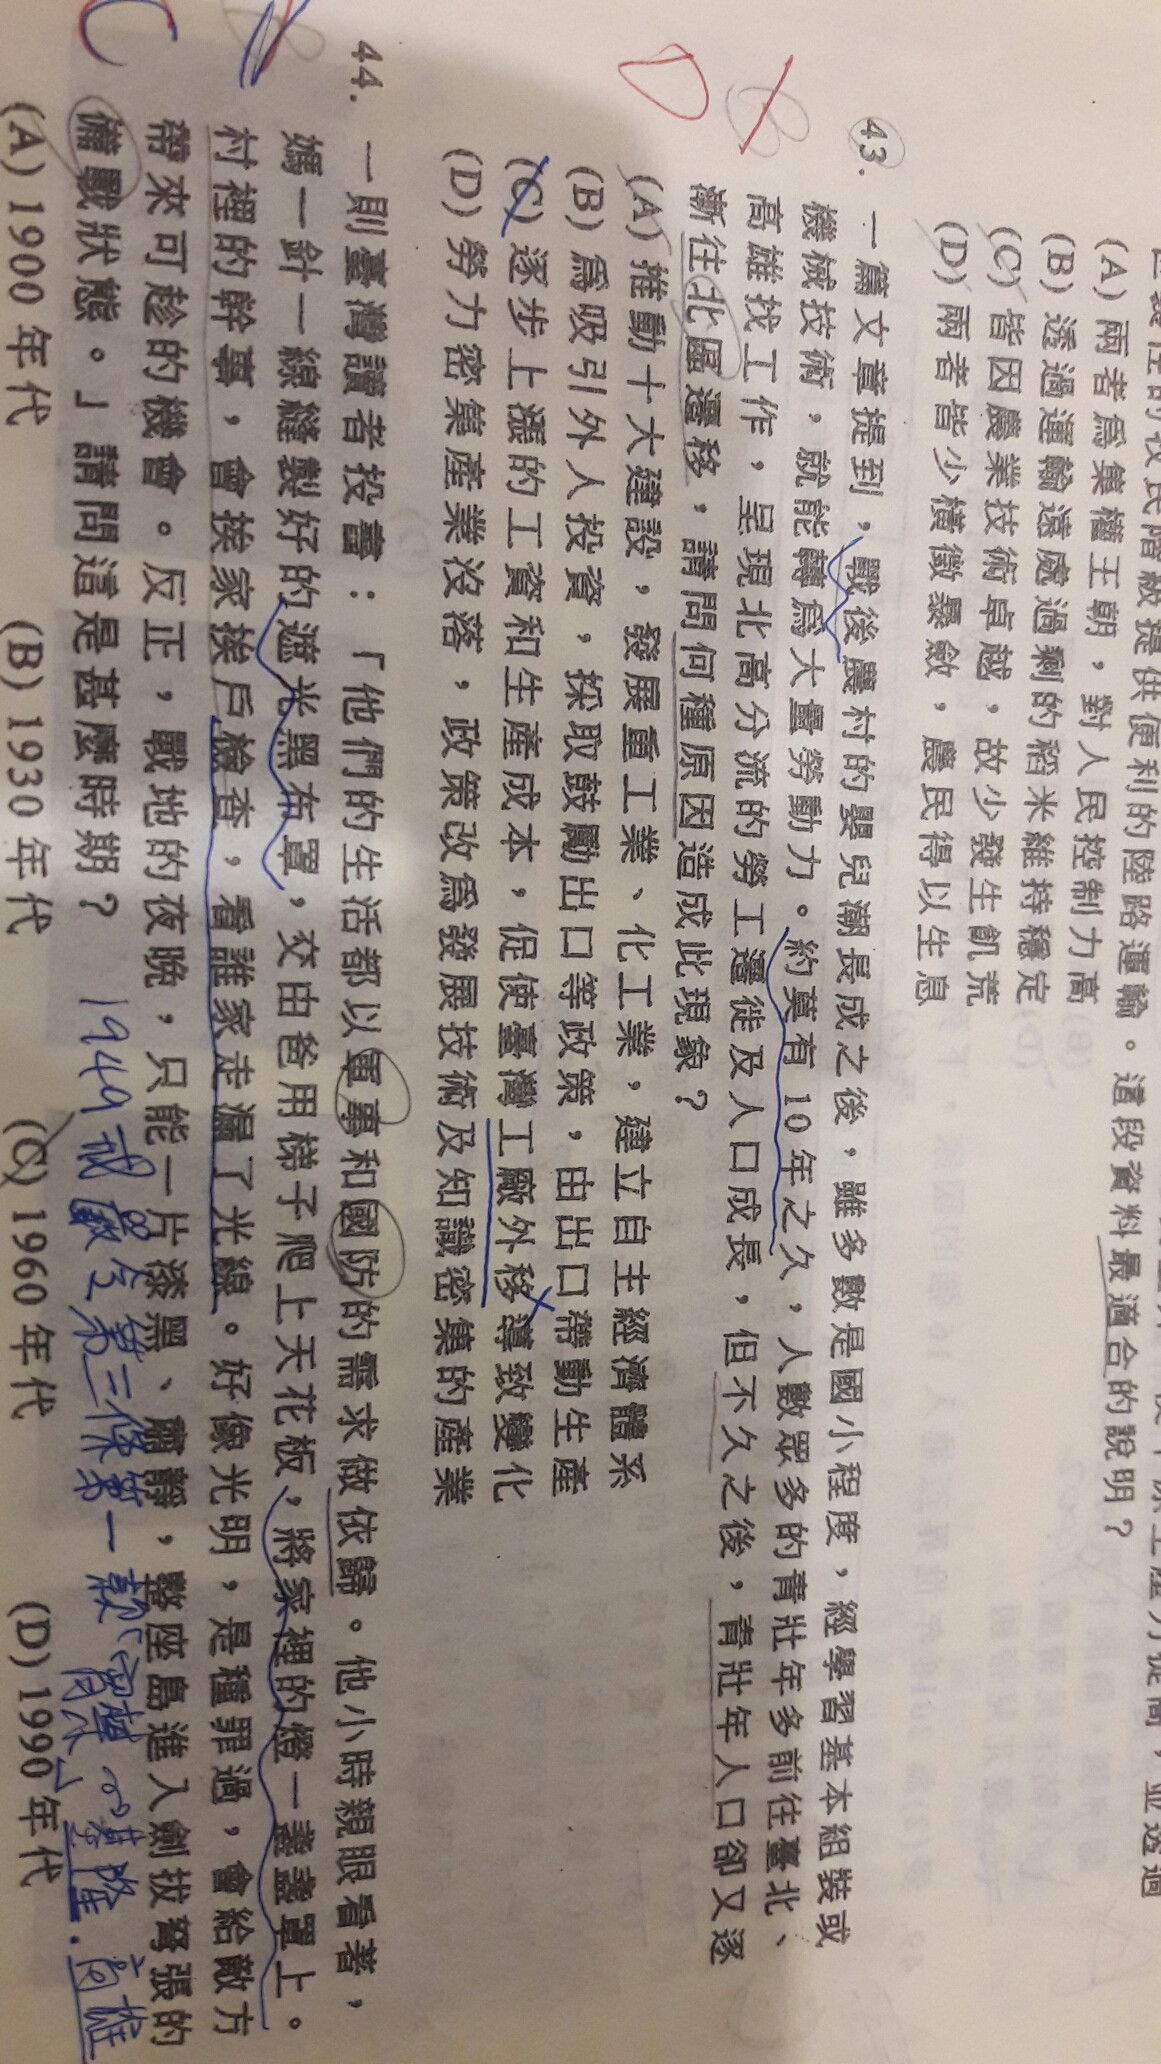 級提供便利的陸路運輸。這段資料最適合的說明？
(A) 兩者為集權王朝，對人民控制力高
(B) 透過運輸遠處過剩的稻米維持穩定
(C) 皆因農業技術卓越，故少發生飢荒
(D) 兩者皆少橫徵暴斂，農民得以生息
43. 一篇文章提到，戰後農村的嬰兒潮長成之後，雖多數是國小程度，經學習基本組裝或
機械技術，就能轉為大量勞動力。約莫有10年之久，人數眾多的青壯年多前往臺北、
高雄找工作，呈現北高分流的勞工遷徙及人口成長，但不久之後，青壯年人口卻又逐
漸往北區遷移，請問何種原因造成此現象？
(A) 推動十大建設，發展重工業、化工業，建立自主經濟體系
(B) 為吸引外人投資，採取鼓勵出口等政策，由出口帶動生產
(C) 逐步上漲的工資和生產成本，促使臺灣工廠外移導致變化
(D) 勞力密集產業沒落，政策改為發展技術及知識密集的產業
D
44. 一則臺灣讀者投書：「他們的生活都以軍事和國防的需求做依歸。他小時親眼看著，
媽一針一線縫製好的遮光黑布罩，交由爸用梯子爬上天花板，將家裡的燈一盞盞罩上。
村裡的幹事，會挨家挨戶檢查，看誰家走漏了光線。好像光明，是種罪過，會給敵方
帶來可趁的機會。反正，戰地的夜晚，只能一片漆黑、肅靜，整座島進入劍拔弩張的
備戰狀態。」請問這是甚麼時期？
1949 戒嚴令第三條第一款 宵禁 基隆、高雄
C
(A) 1900年代 (B) 1930年代 (C) 1960年代 (D) 1990年代